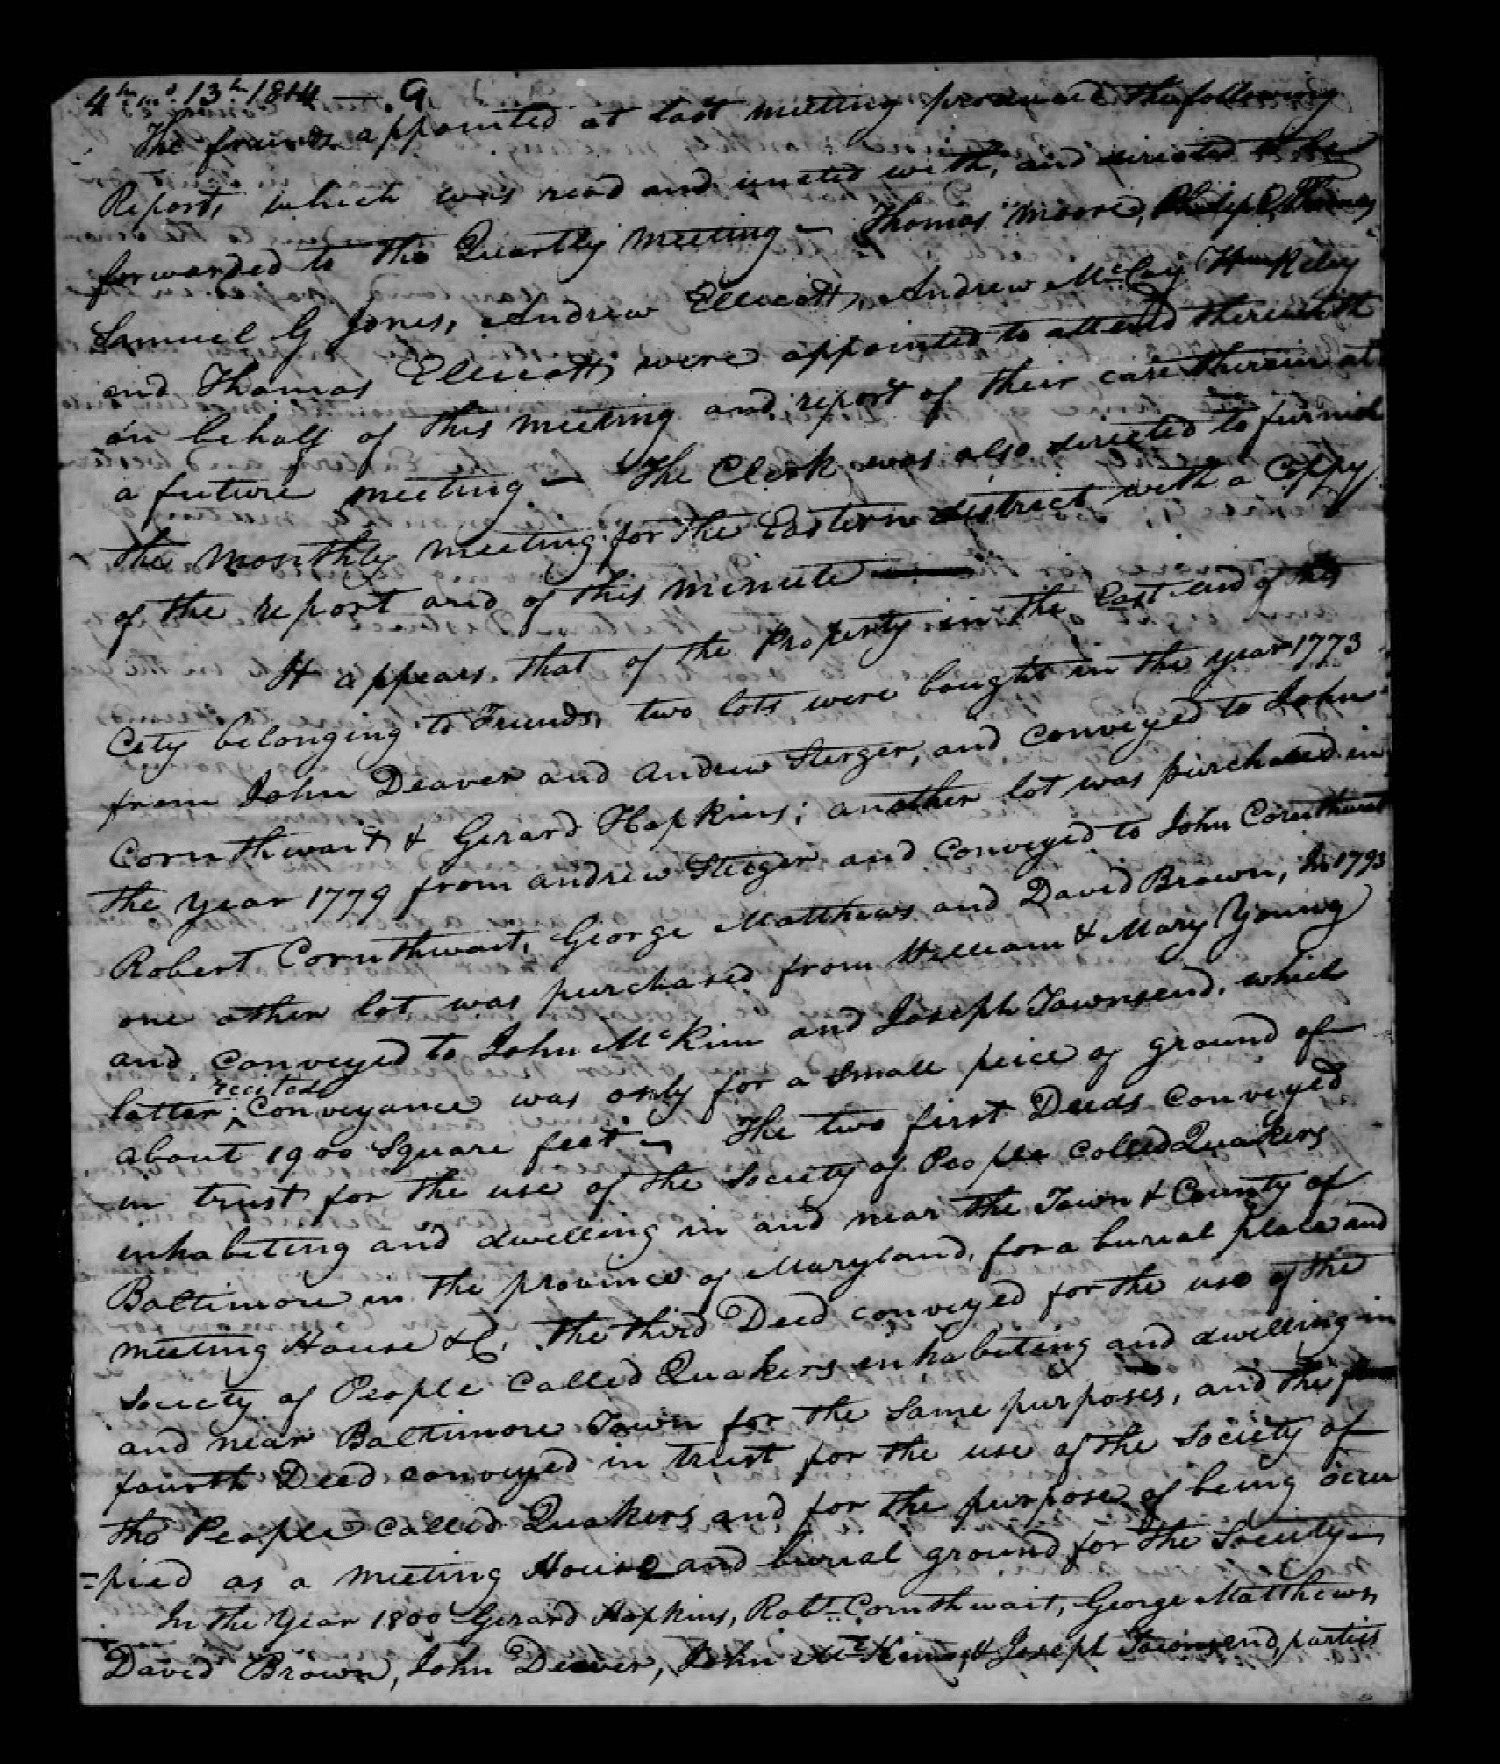 4th. mo. 13th. 1814 — 9
The friends appointed at last meeting produced the following
Report, which was read and united with, and directed to be
forwarded to the Quartly meeting — Thomas Moore, Philip E. Thomas,
Samuel G Jones, Andrew Ellicott, Andrew McCoy Wm Riley
and Thomas Ellicott, were appointed to attend therewith
on behalf of this meeting and report of their care therein at
a future meeting — The Clerk was also directed to furnish
the monthly meeting for the Eastern district with a Coppy
of the report and of this minute —
It appears that of the Property in the East end of this
City belonging to Friends, two lots were bought in the year 1773
from John Deaver and Andrew Sterger, and conveyed to John
Cornthwait & Gerard Hopkins; another lot was purchased in
the year 1779 from andrew Steiger and Conveyed to John Cornthwait
Robert Cornthwait, George Matthews and David Brown, In 1793
one other lot was purchased from William & Mary Young
and Conveyed to John McKim and Joseph Townsend, which
latter recited Conveyance was only for a small peice of ground of
about 1900 Square feet — The two first Deeds conveyed
in trust for the use of the Society of People called Quakers
inhabiting and dwelling in and near the Town & County of
Baltimore in the province of Maryland, for a burial place and
meeting House &C, the third Deed conveyed for the use of the
Society of People Called Quakers inhabiting and dwelling in
and near Baltimore Town for the same purposes, and the
fourth Deed conveyed in trust for the use of the Society of
the People called Quakers and for the purpose of being occu
=pied as a meeting House and burial ground for the Society —
In the Year 1800 Gerard Hopkins, Robt. Cornthwait, George Matthews
David Brown, John Deaver, John McKim, & Joseph Townsend parties